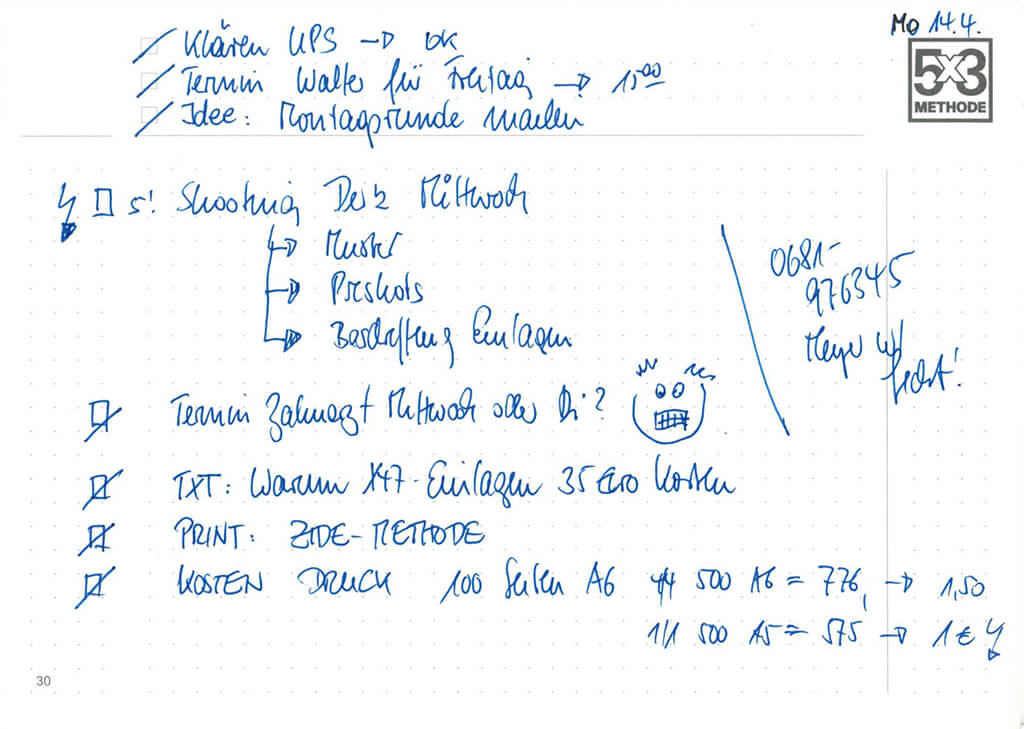 Mo 14.4.
Klären UPS → ok
5x3
METHODE
Termin Walter für Freitag → 15⁰⁰
Idee: Montagsrunde mailen
5! Shooting Mittwoch
→ Muster
→ Preshots
→ Beschaffung Einlagen
0681-
976345
Meyer
Termin Zahnarzt Mittwoch oder Di?
TXT: Warum X47-Einlagen 35 Euro kosten
PRINT: ZIDE-METHODE
KOSTEN DRUCK 100 Seiten A6 4/4 500 A6 = 776, → 1,50
1/1 500 A5 = 575 → 1 €
30